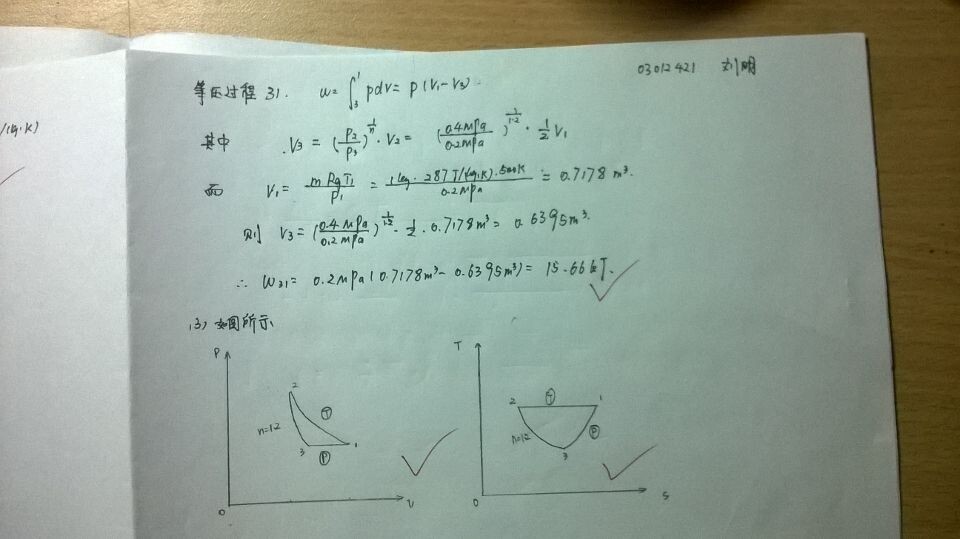 03012421 刘明
等压过程31. w=∫₃¹pdv= p(V₁-V₃).
其中 V₃=(P₂/P₃)^(1/n)·V₂= (0.4MPa/0.2MPa)^(1/1.2)·1/2V₁
而 V₁= mRgT₁/P₁ = 1kg·287J/(kg·K)·500K/0.2MPa = 0.7178m³.
/(kg·K)
则 V₃=(0.4MPa/0.2MPa)^(1/1.2)·1/2·0.7178m³= 0.6395m³.
∴ W₃₁= 0.2MPa(0.7178m³-0.6395m³)= 15.66kJ.
(3) 如图所示
P
2
T
n=1.2
3
P
1
0
V
T
2
T
1
n=1.2
P
3
0
S